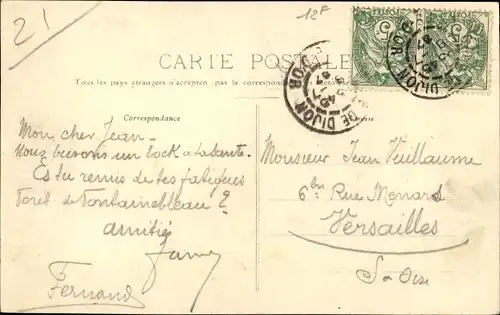 21
12F
CARTE POSTALE
Tous les pays étrangers n'acceptent pas la correspondance
Correspondance
Mon cher Jean
Nous buvons un bock à ta santé.
Es tu remis de tes fatigues
Foret de Fontainebleau ?
amitiés
Fernand
Monsieur Jean Vuillaume
6 bis Rue Ménard
Versailles
S & Oise
DE DIJON
DIJON